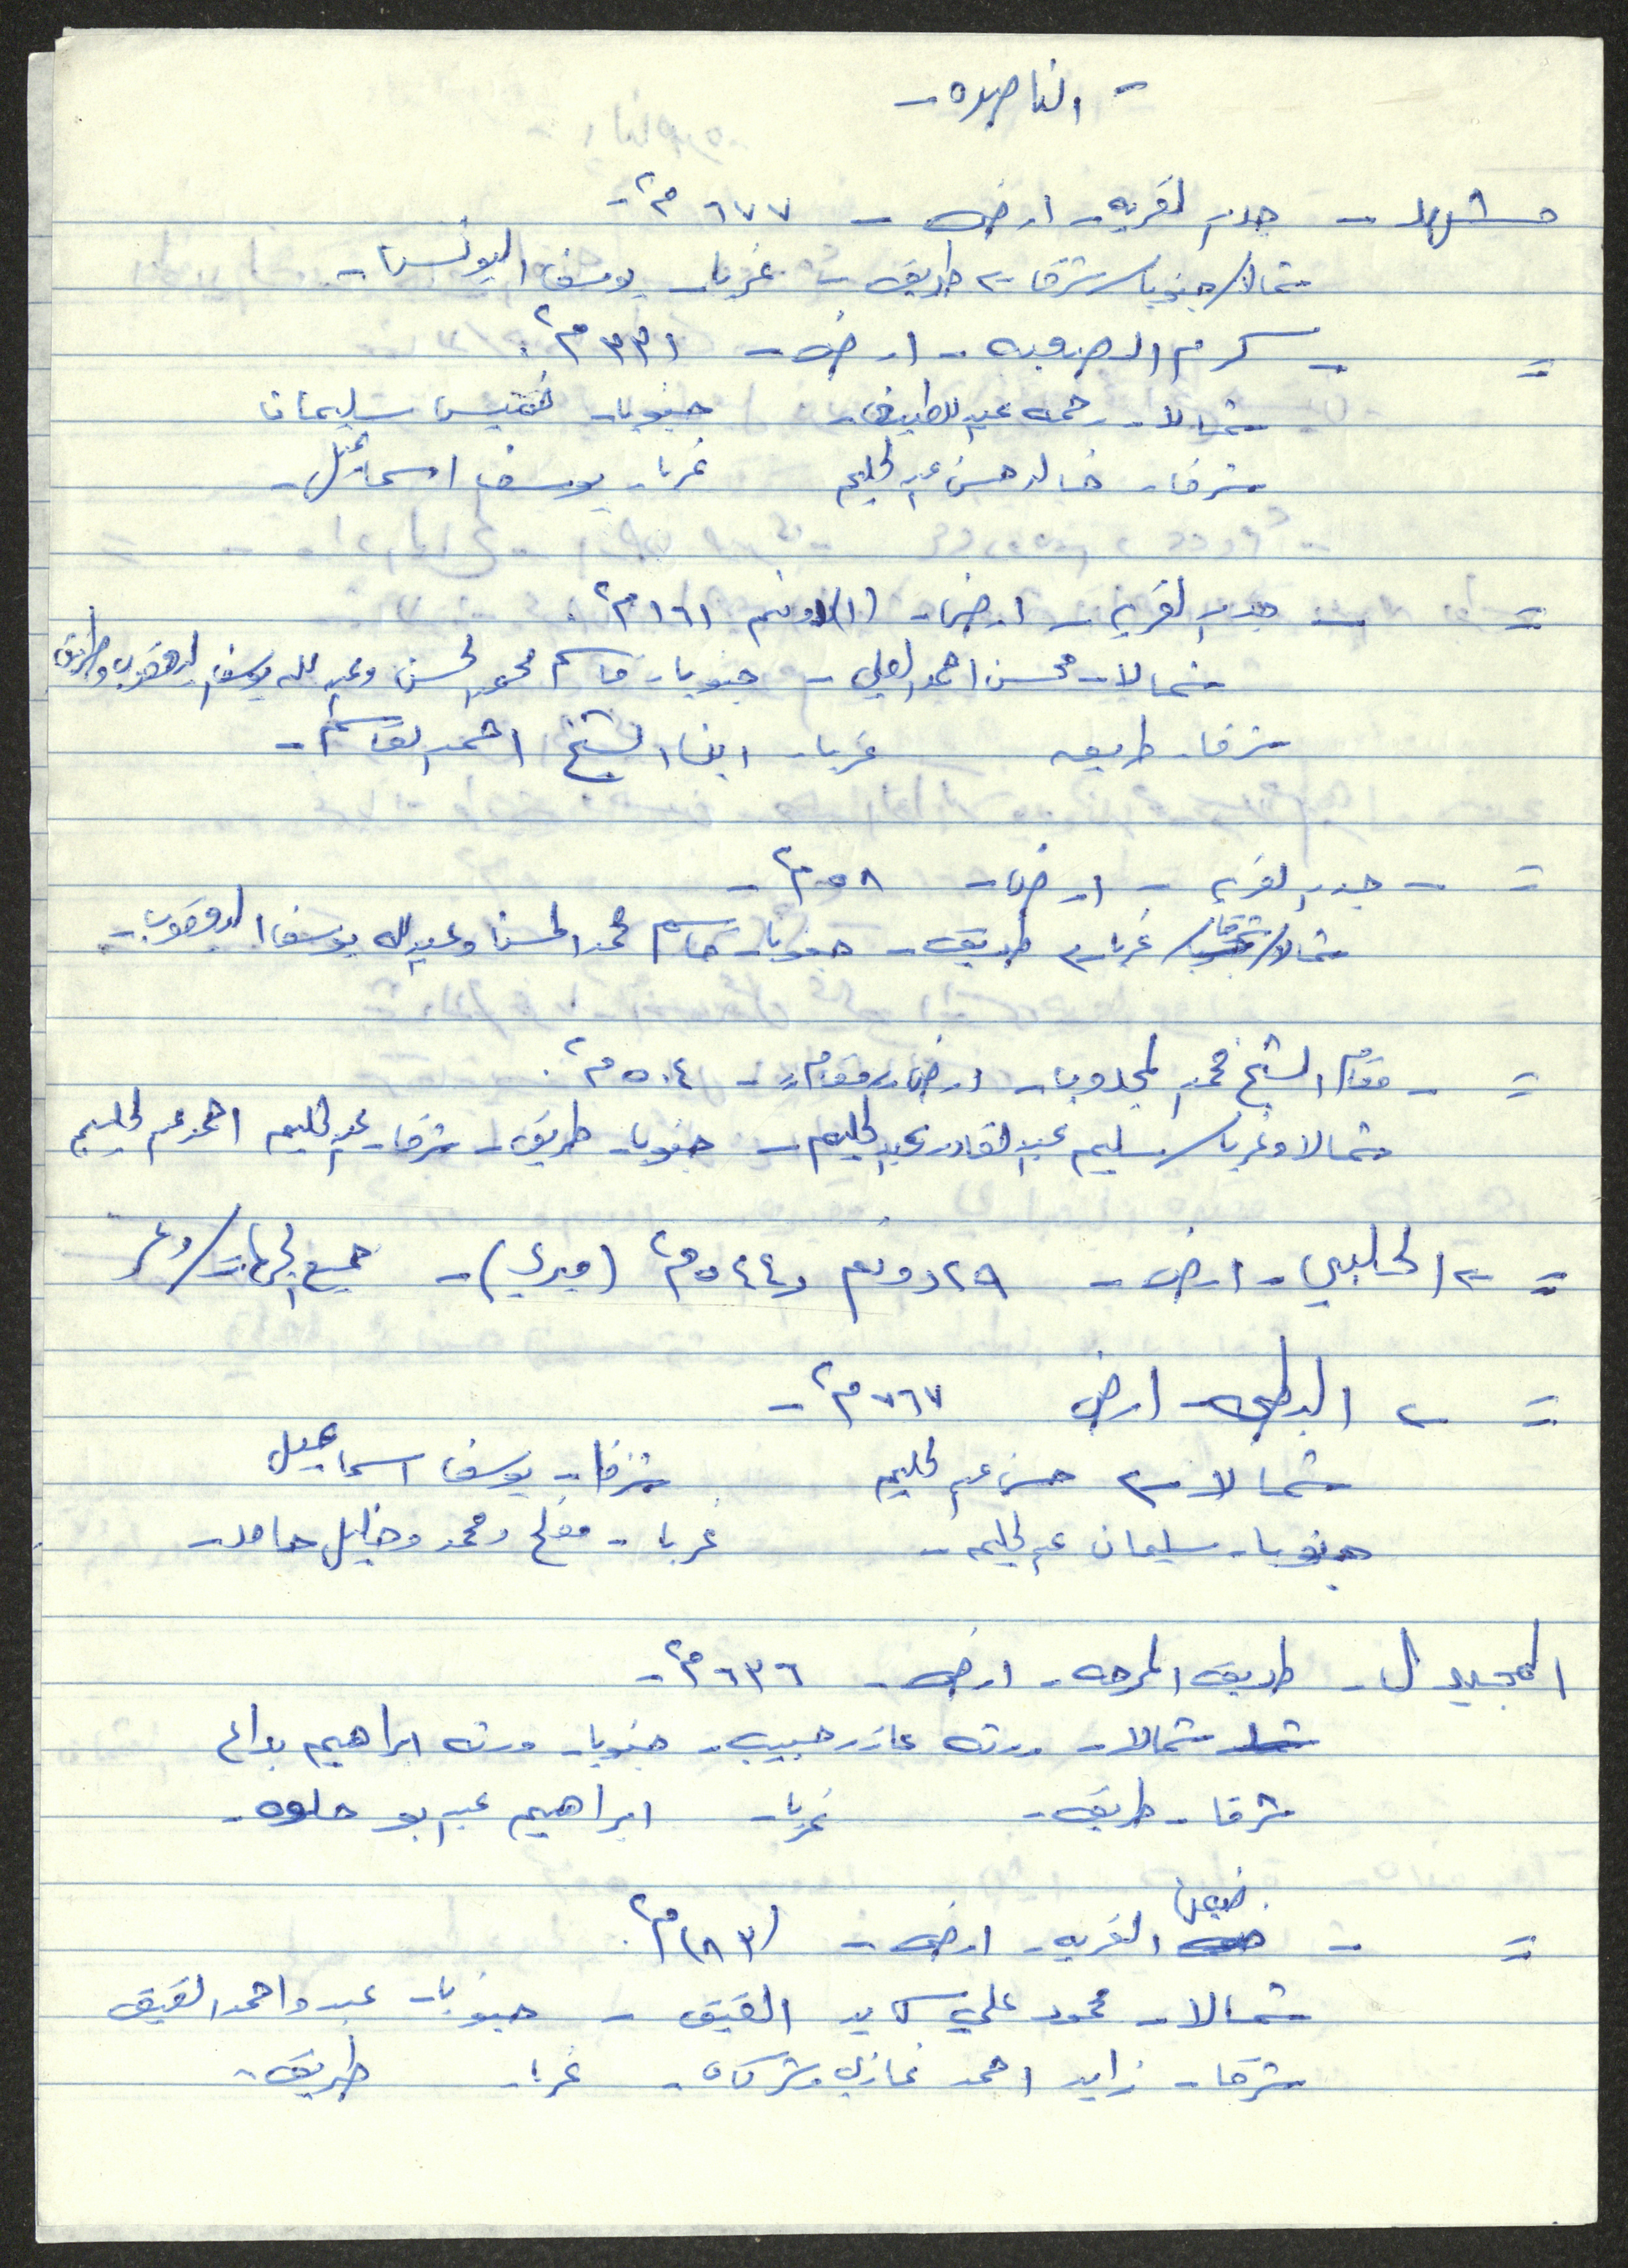 - الناصره -
مشهد - جدر القريه - ارض - ٦٧٧ م٢ -
شمالا/جنوبا/شرقا - طريق - غربا - يوسف اليونس -
= - كرم الصروبه - ارض - ٣٣١ م٢.
شمالا - رحمه عبد اللطيف - جنوبا - خميس سليمان
شرقا - خالد حسن عبد الحليم غربا - يوسف اسماعيل -
= - جدر القريه - ارض - (١) دونم ١٦١ م٢.
شمالا - محسن احمد العلي - جنوبا - قاسم محمد الحسن وعبد الله يوسف وطريق
شرقا - طريق غربا - ابناء الشيخ احمد القاسم -
= - جدر القريه - ارض - ٥٨ م٢ -
شمالا/شرقا/غربا - طريق - جنوبا - قاسم محمد الحسن وعبد الله يوسف -
= - مقام الشيخ محمد المجدوب - ارض ومقام - ٥٠٤ م٢.
شمالا وغربا/سليم عبد القادر عبد الحليم - جنوبا - طريق - شرقا - عبد الحليم احمد عبد الحليم
= - الحلبي - ارض - ٢٩ دونم و٥٤٤ م٢ (ميري) - جميع الجهات/وعر
= - ارض ٧٦٧ م٢ -
شمالا - حسن عبد الحليم شرقا - يوسف اسماعيل
جنوبا - سليمان عبد الحليم - غربا - مفلح ومحمد وخليل حامد -
المجيدل - طريق المرجه - ارض - ٦٣٦ م٢ -
شمالا - ورثه عازر حبيب - جنوبا - ورثه ابراهيم
شرقا - طريق - غربا - ابراهيم عبد بو حلوه -
= - ضمن القريه - ارض - (٨٣) م٢.
شمالا - محمود علي كايد القيق - جنوبا - عبد واحمد القيق
شرقا - زايد احمد غازي وشركاه - غربا - طريق -